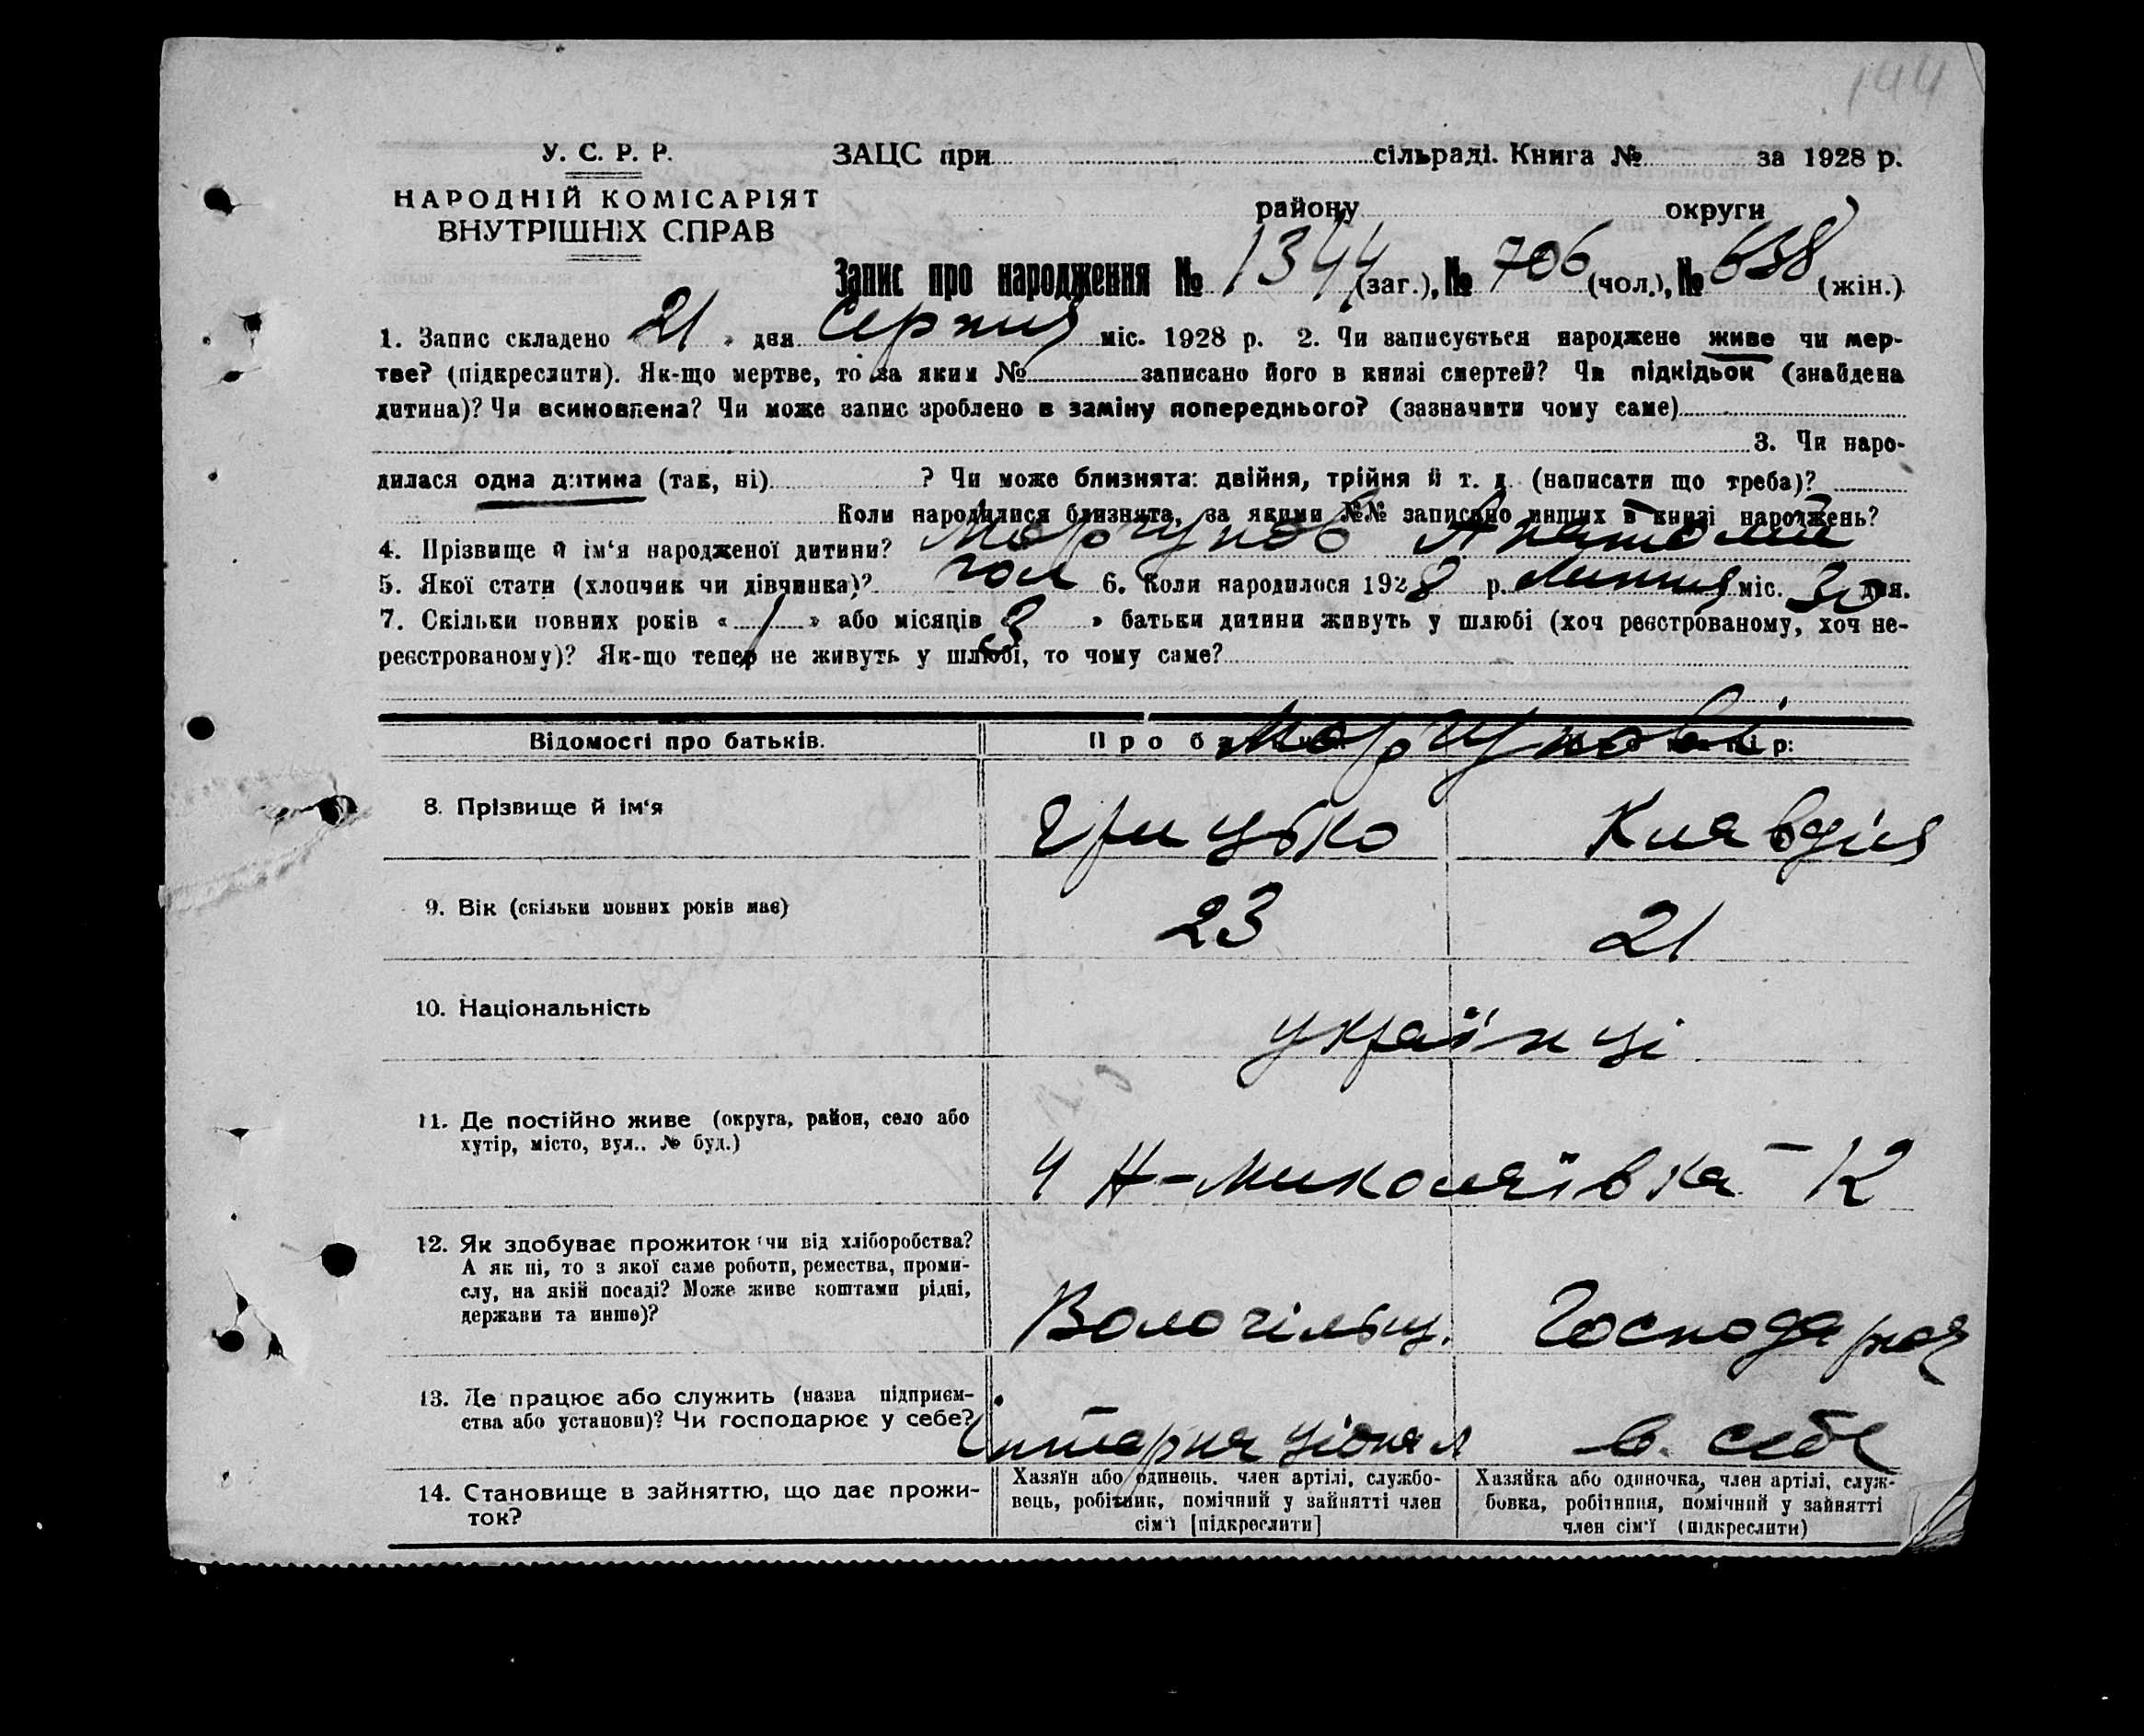 144
У. С. Р. Р.
НАРОДНІЙ КОМІСАРІЯТ
ВНУТРІШНІХ СПРАВ
ЗАЦС при сільраді. Книга № за 1928 р.
району округи
Запис про народження № 1344 (заг.), № 706 (чол.), № 638 (жін.)
1. Запис складено « 21 » дня Серпня міс. 1928 р. 2. Чи записується народжене живе чи мер-
тве? (підкреслити). Як-що мертве, то за яким № записано його в книзі смертей? Чи підкідьок (знайдена
дитина)? Чи всиновлена? Чи може запис зроблено в заміну попереднього? (зазначити чому саме)
3. Чи наро-
дилася одна дитина (так, ні) ? Чи може близнята: двійня, трійня й т. д. (написати що треба)?
Коли народилися близнята, за якими №№ записано инших в книзі народжень?
4. Прізвище й ім‘я народженої дитини? Моргунов Анатолий
5. Якої стати (хлопчик чи дівчинка)? чол 6. Коли народилося 1928 р. Липня міс. 30 дня.
7. Скільки повних років « 1 » або місяців 3 » батьки дитини живуть у шлюбі (хоч реєстрованому, хоч не-
реєстрованому)? Як-що тепер не живуть у шлюбі, то чому саме?
Відомості про батьків.
Моргунові
8. Прізвище й ім‘я
Грицько Клавдія
9. Вік (скільки повних років має)
23 21
10. Національність
українці
11. Де постійно живе (округа, район, село або
хутір, місто, вул.. № буд.)
4 Н-Миколаївка - 12
12. Як здобуває прожиток чи від хліборобства?
А як ні, то з якої саме роботи, ремества, проми-
слу, на якій посаді? Може живе коштами рідні,
держави та инше)?
Волочільщ. Господарка
13. Де працює або служить (назва підприєм-
ства або установи)? Чи господарює у себе?
Интернаціонал в себе
14. Становище в зайняттю, що дає прожи-
ток?
Хазяїн або одинець, член артілі, службо-
вець, робітник, помічний у зайнятті член
сім‘ї [підкреслити]
Хазяйка або одиночка, член артілі, служ-
бовка, робітниця, помічний у зайнятті
член сім‘ї (підкреслити)